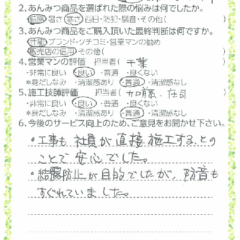 2.あんみつ商品を選ばれた際の悩みは何でしたか。
結露・暑さ・寒さ・西日・防犯・騒音・その他(
3.あんみつ商品をご購入頂いた最終判断は何ですか。
・ブランド・クチコミ・営業マンの勧め
・その他(
4.営業マンの評価 担当者( 千葉
・非常に良い・良い・普通・良くない
・身だしなみ・清潔あり・普通・清潔感なし
5.施工技師評価 担当者( 加藤、
・非常に良い・良い・普通・良くない
・身だしなみ・清潔感あり・普通・清潔感なし
6.今後のサービス向上のため、ご意見をお聞かせ下さい。
・工事も社員が直接施工する、との
ことで安心でした。
・結露防止が目的でしたが、防音も
すぐれていました。